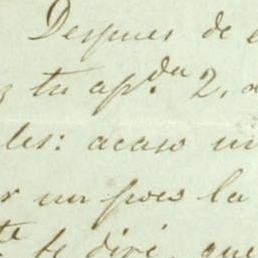 Despues de
tu ap.da 2,
les: acaso
r un poco la
te diré, que